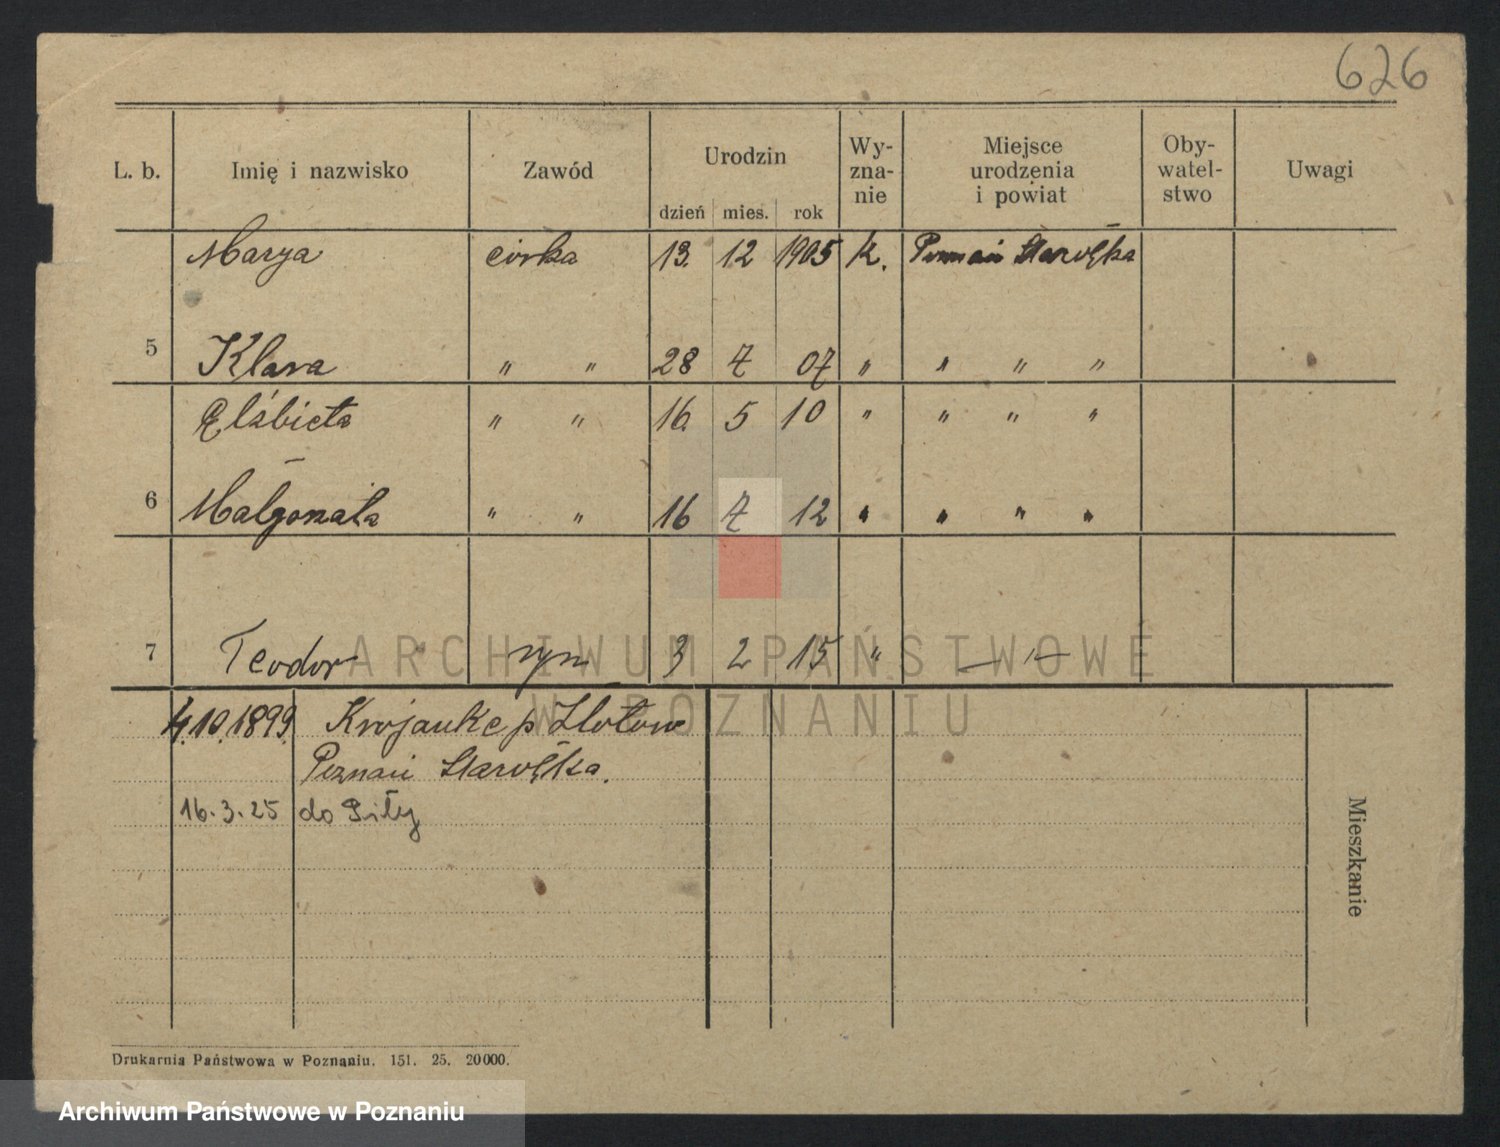 626
L. b. Imię i nazwisko Zawód Urodzin dzień mies. rok Wy-zna-nie Miejsce urodzenia i powiat Oby-watel-stwo Uwagi
Marya córka 13. 12 1905 K. Poznań Starołęka
5 Klara " " 28 7 07 " " " "
Elżbieta " " 16. 5 10 " " " "
6 Małgorzata " " 16 7 12 " " " "
7 Teodor syn 3 2 15 " — " —
4.10.1899 Krojanke p Złotow
Poznań Starołęka.
16.3.25 do Piły
Mieszkanie
Drukarnia Państwowa w Poznaniu. 151. 25. 20000.
ARCHIWUM PAŃSTWOWE
W POZNANIU
Archiwum Państwowe w Poznaniu